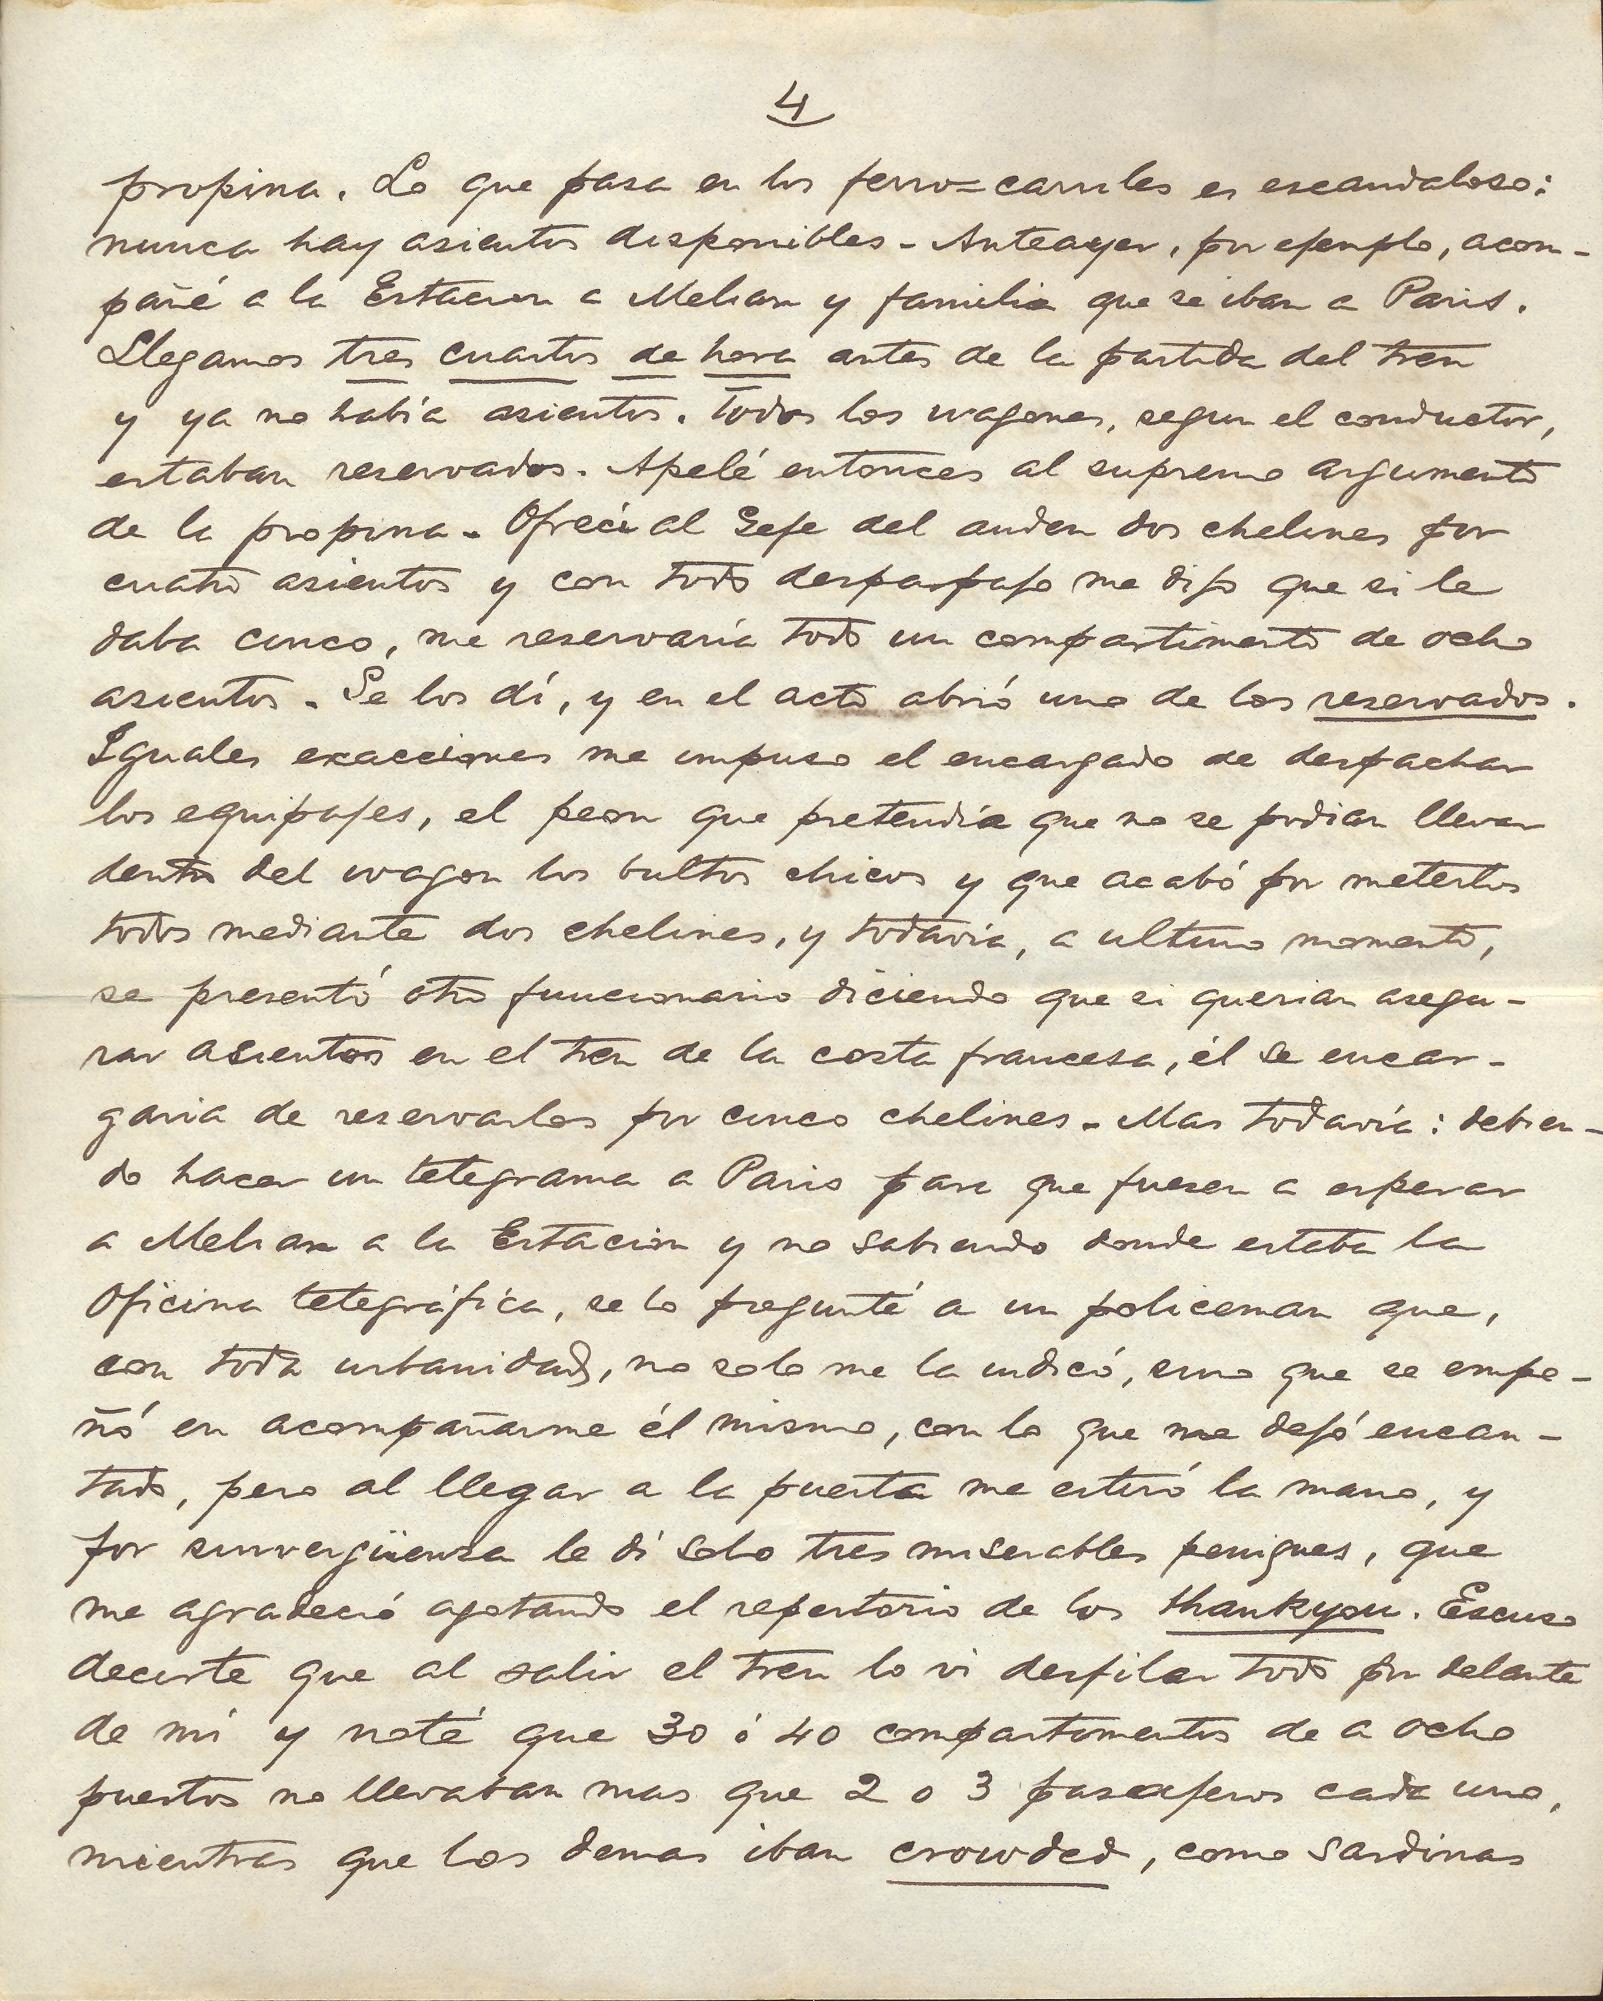 4
propina. Lo que pasa en los ferro=carriles es escandaloso:
nunca hay asientos disponibles - Anteayer, por ejemplo, acom-
pañé a la Estacion a Melian y familia que se iban a Paris.
Llegamos tres cuartos de hora antes de la partida del tren
y ya no había asientos. Todos los wagones, segun el conductor,
estaban reservados. Apelé entonces al supremo argumento
de la propina. Ofreci al Gefe del anden dos chelines por
cuatro asientos y con todo desparpajo me dijo que si le
daba cinco, me reservaria todo un compartimento de ocho
asientos. Se los dí, y en el acto abrió uno de los reservados.
Iguales exacciones me impuso el encargado de despachar
los equipajes, el peon que pretendía que no se podian llevar
dentro del wagon los bultos chicos y que acabó por meterlos
todos mediante dos chelines, y todavia, a ultimo momento,
se presentó otro funcionario diciendo que si querian asegu-
rar asientos en el tren de la costa francesa, él se encar-
garia de reservarlos por cinco chelines. Mas todavía: debien-
do hacer un telegrama a Paris para que fuesen a esperar
a Melian a la Estacion y no sabiendo donde estaba la
Oficina telegráfica, se lo pregunté a un policeman que,
con toda urbanidad, no solo me la indicó, sino que se empe-
ñó en acompañarme él mismo, con lo que me dejó encan-
tado, pero al llegar a la puerta me estiró la mano, y
por sinvergüenza le di solo tres miserables peniques, que
me agradeció agotando el repertorio de los thankyou. Escuso
decirte que al salir el tren lo vi desfilar todo por delante
de mí y noté que 30 ó 40 compartimentos de a ocho
puestos no llevaban mas que 2 o 3 pasajeros cada uno,
mientras que los demas iban crowded, como sardinas